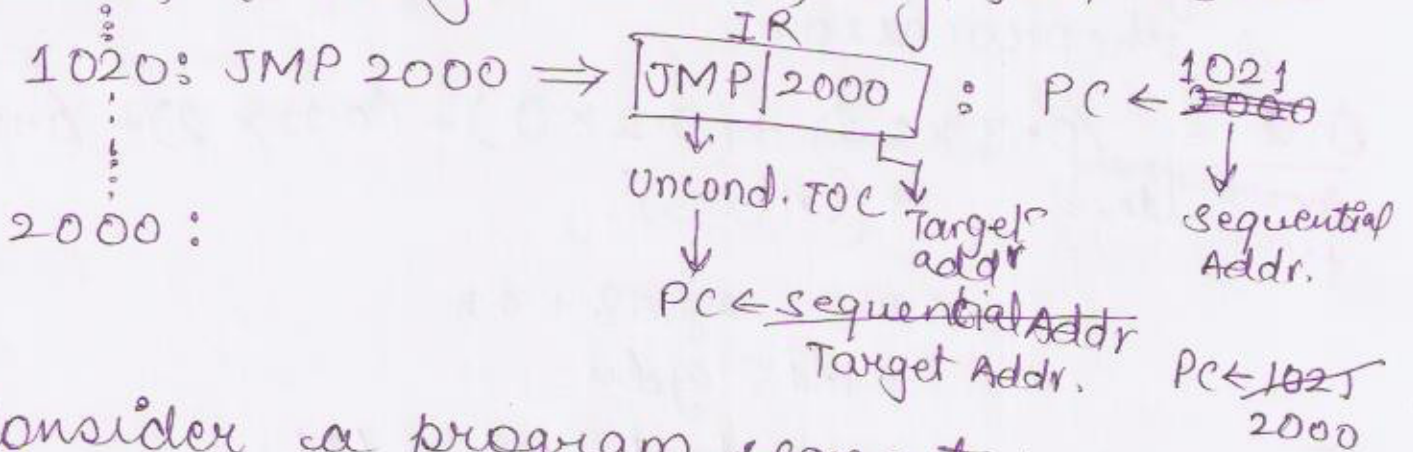 IR
1020: JMP 2000 ⇒ |JMP|2000| : PC ← 1021
2000
Uncond. TOC
Target addr
Sequential Addr.
2000 :
PC ← Sequential Addr
Target Addr.
PC ← 1021
2000
onsider a program